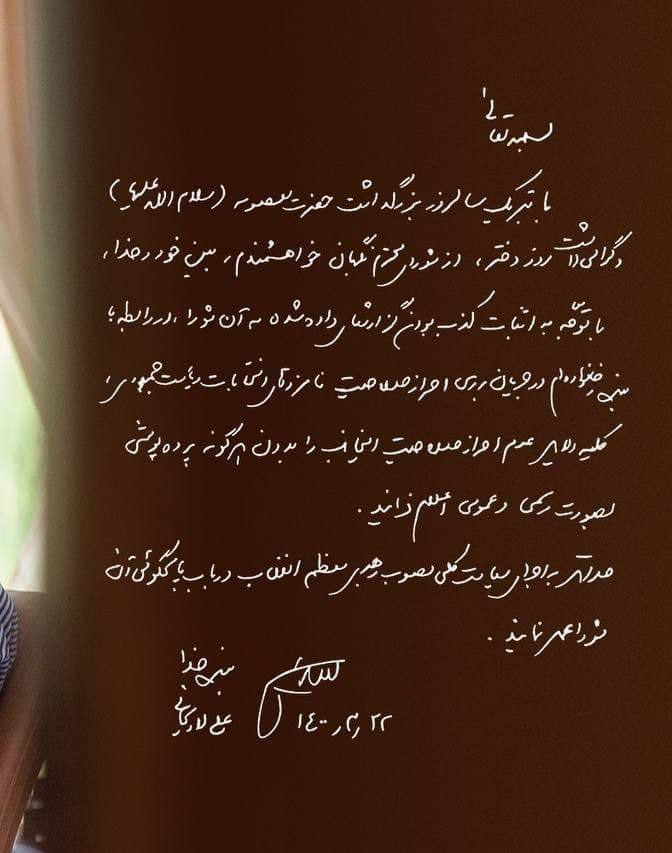 بسمه تعالی
با تبریک سالروز بزرگداشت حضرت معصومه (سلام الله علیها)
و گرامی‌داشت روز دختر، از شورای محترم نگهبان خواهشمندم، بین خود و خدا،
با توجّه به اثبات کذب بودن گزارشهای داده شده به آن شورا، در رابطه با
بنده و خانواده‌ام در جریان بررسی احراز صلاحیت نامزدهای انتخابات ریاست جمهوری،
کلیه دلایل عدم احراز صلاحیت اینجانب را بدون هرگونه پرده پوشی
بصورت رسمی و عمومی اعلام فرمایند.
حداقل به اجرای سیاست کلی مصوب رهبری معظم انقلاب در باب پاسخگوئی آن
شورا عمل نمایند.
بنده خدا
علی لاریجانی
۱۴۰۰ر۳ر۲۲